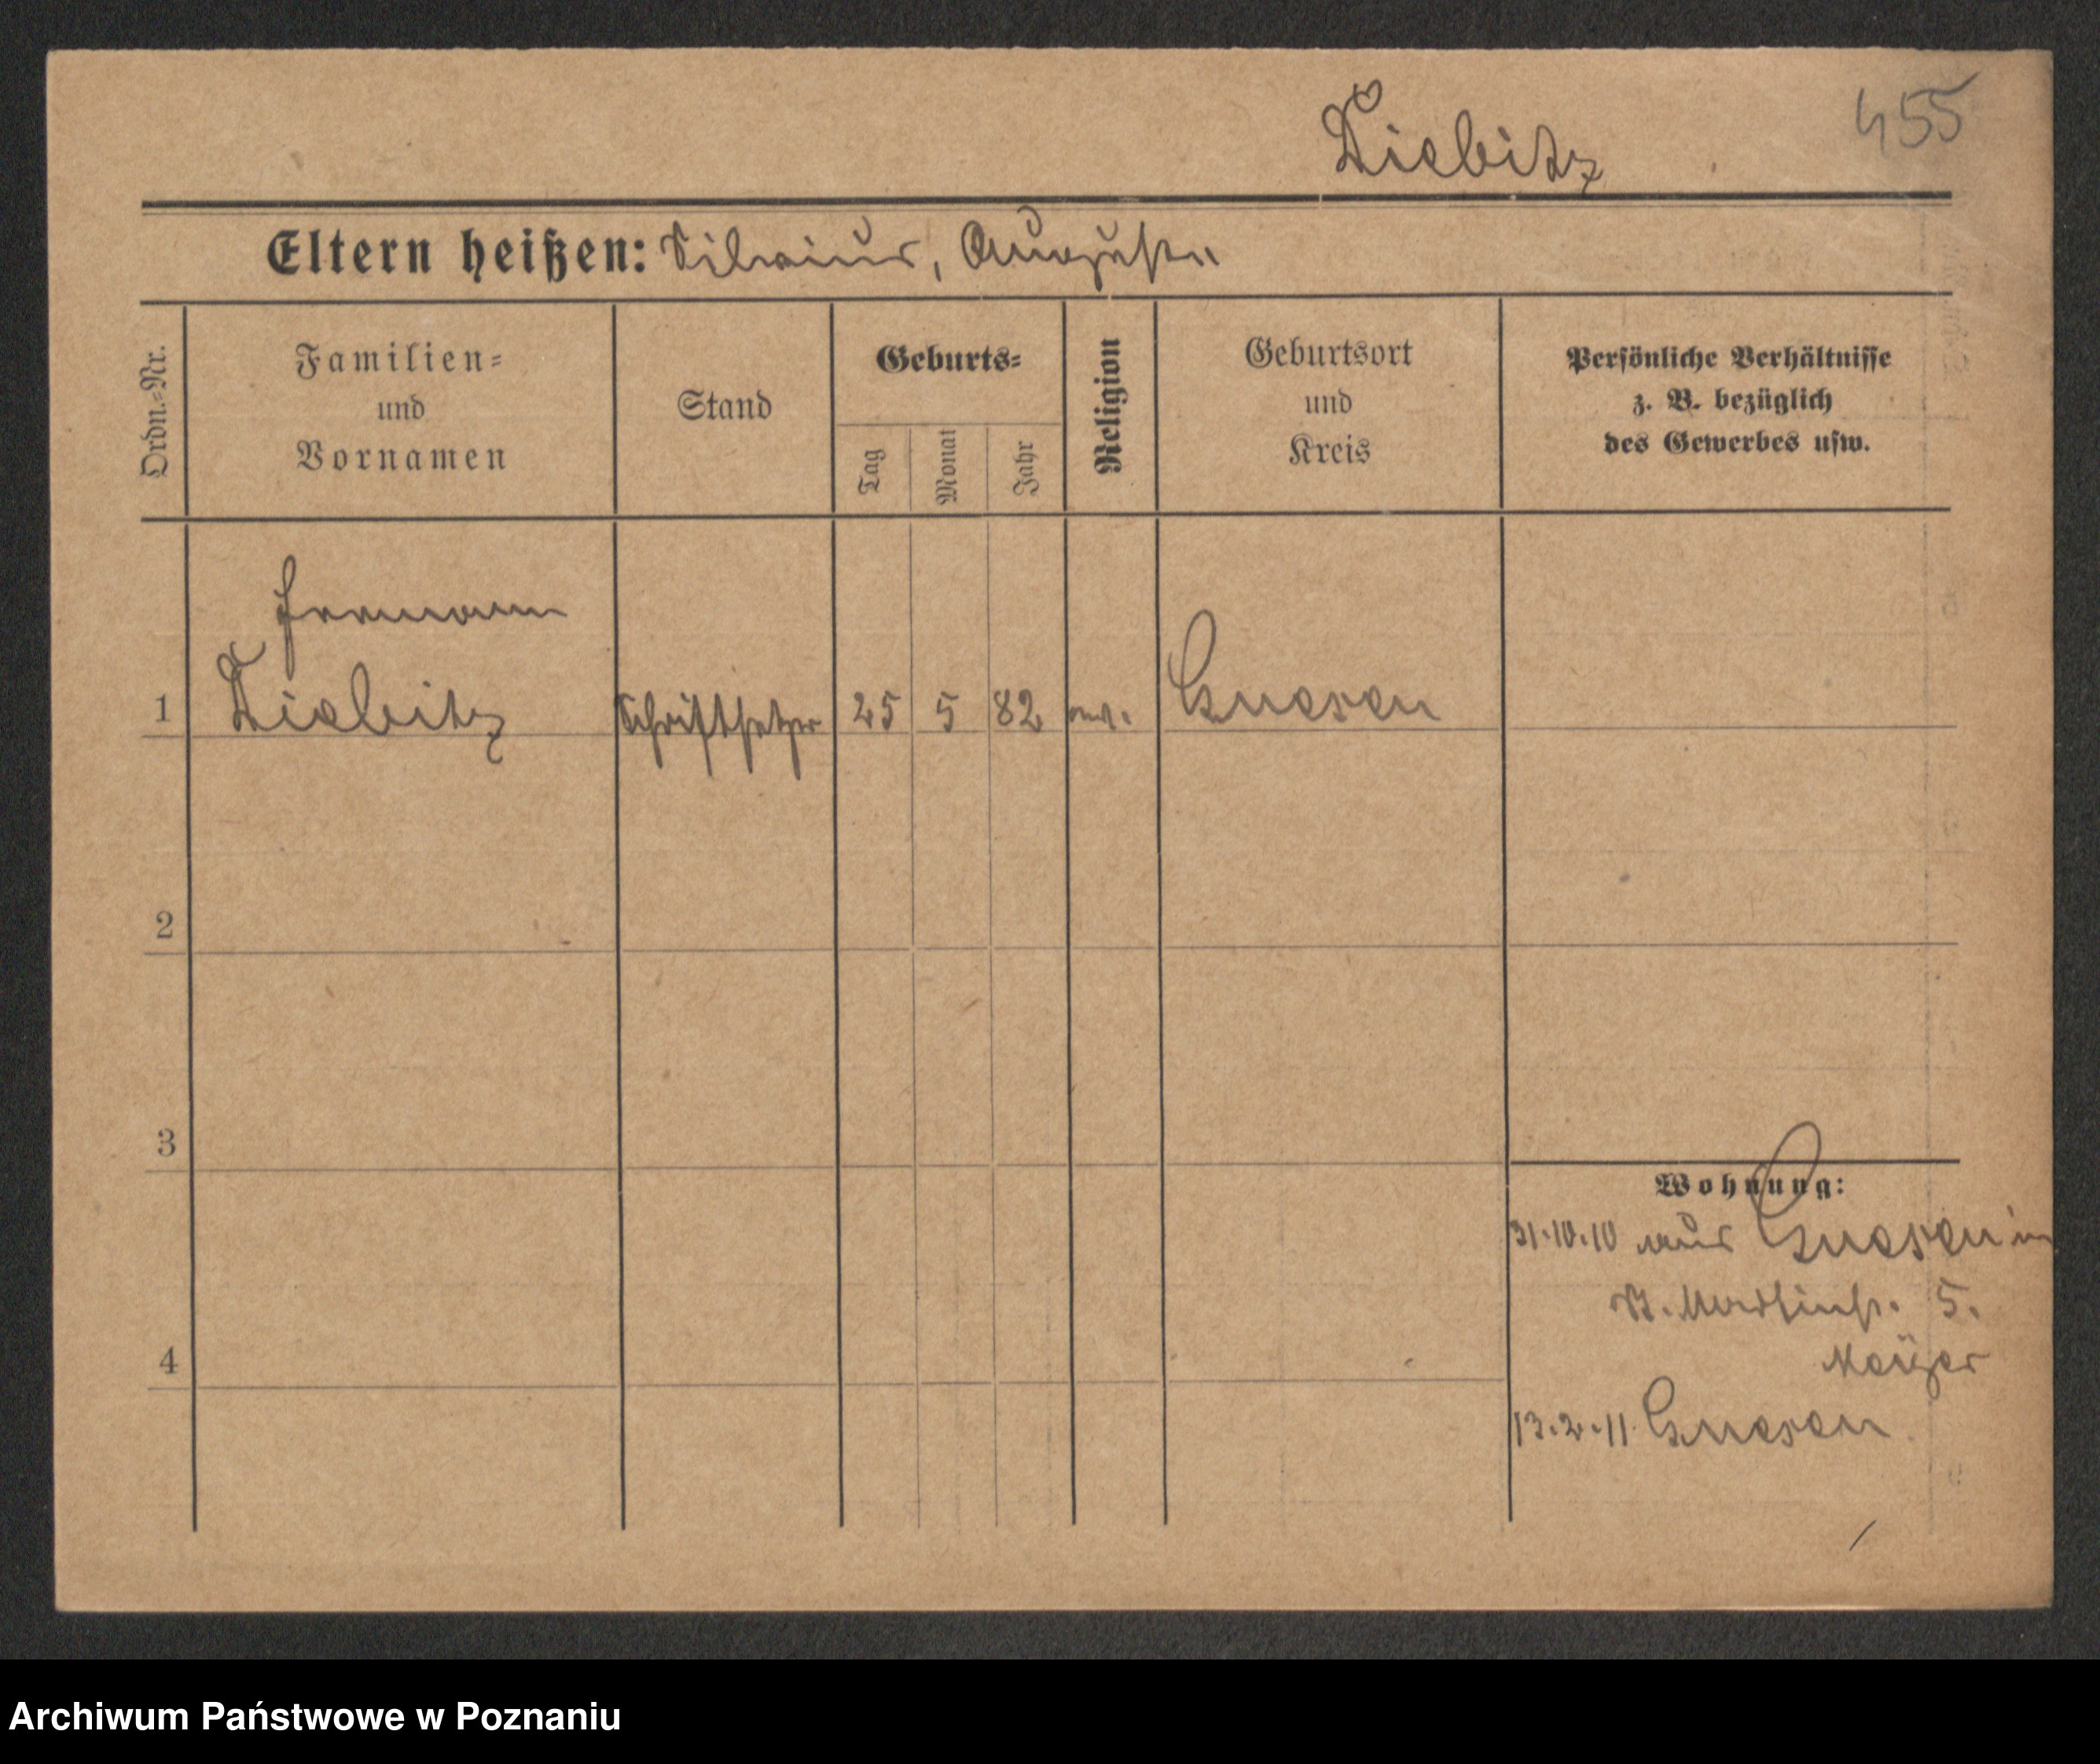 455
Liebitz
Eltern heißen: Silvius, Auguste
Ordn.-Nr.
Familien-
und
Vornamen
Stand
Geburts-
Tag
Monat
Jahr
Religion
Geburtsort
und
Kreis
Persönliche Verhältnisse
z. B. bezüglich
des Gewerbes usw.
Hermann
1 Liebitz Schriftsetzer 25 5 82 ev. Gnesen
2
3
4
Wohnung:
31.10.10 aus Gnesen in
St. Martinstr. 5.
13.2.11. Gnesen
Archiwum Państwowe w Poznaniu